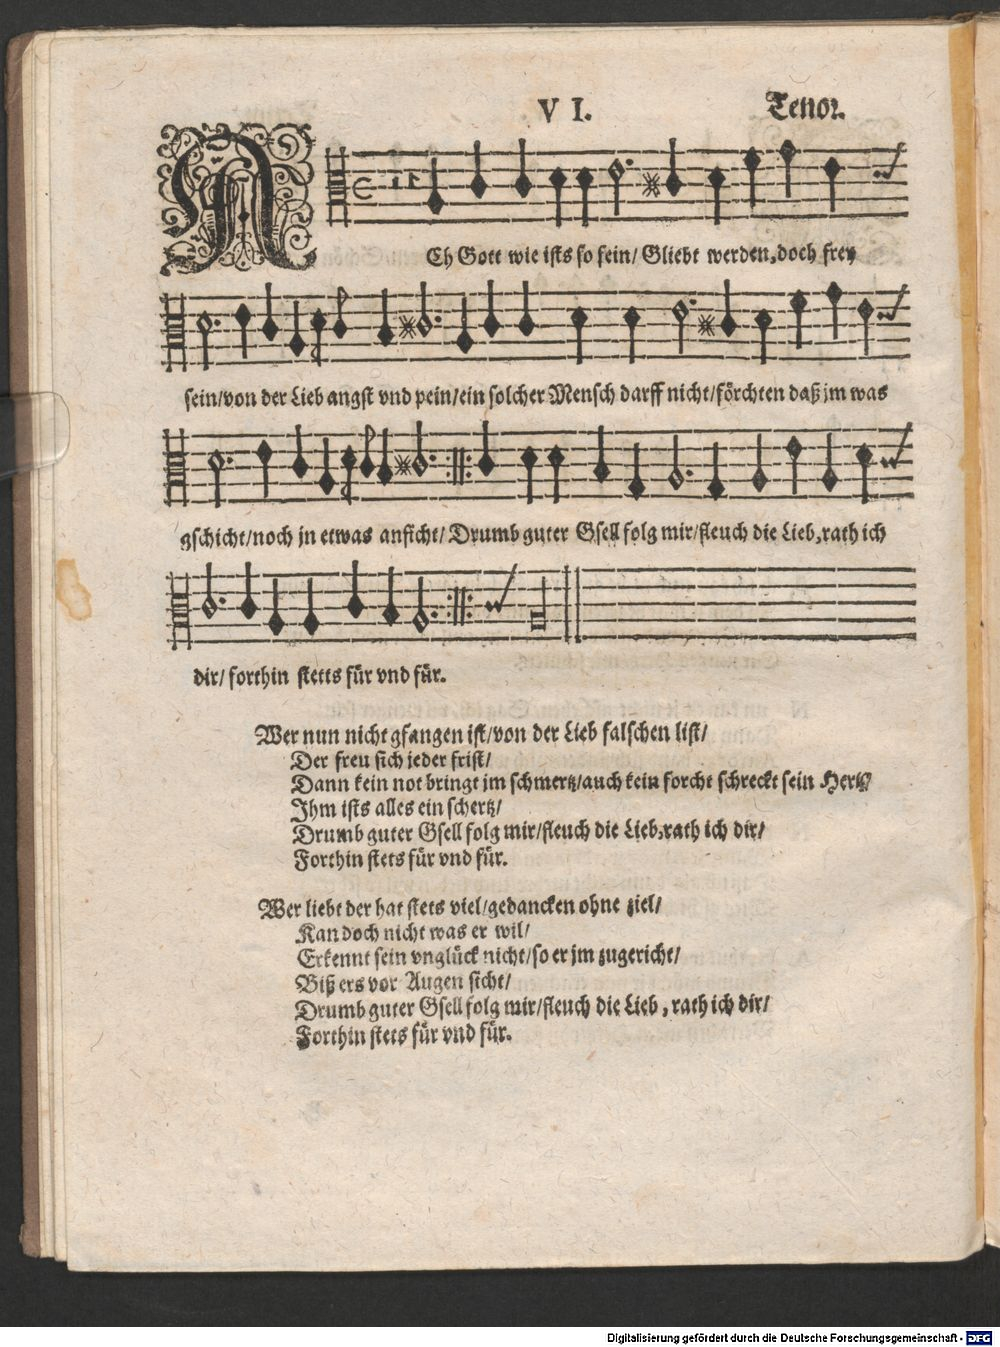 V I.
Tenor.
ACh Gott wie ists so fein/ Gliebt werden, doch frey
sein/von der Lieb angst vnd pein/ein solcher Mensch darff nicht/förchten daß jm was
gschicht/noch jn etwas anficht/ Drumb guter Gsell folg mir/fleuch die Lieb, rath ich
dir/ forthin stetts für vnd für.
Wer nun nicht gfangen ist/von der Lieb falschen list/
Der freu sich jeder frist/
Dann kein not bringt jm schmertz/auch kein forcht schreckt sein Hertz/
Ihm ists alles ein schertz/
Drumb guter Gsell folg mir/fleuch die Lieb, rath ich dir/
Forthin stets für vnd für.
Wer liebt der hat stets viel/gedancken ohne ziel/
Kan doch nicht was er wil/
Erkennt sein vnglück nicht/so er jm zugericht/
Biß ers vor Augen sicht/
Drumb guter Gsell folg mir/fleuch die Lieb, rath ich dir/
Forthin stets für vnd für.
Digitalisierung gefördert durch die Deutsche Forschungsgemeinschaft - DFG